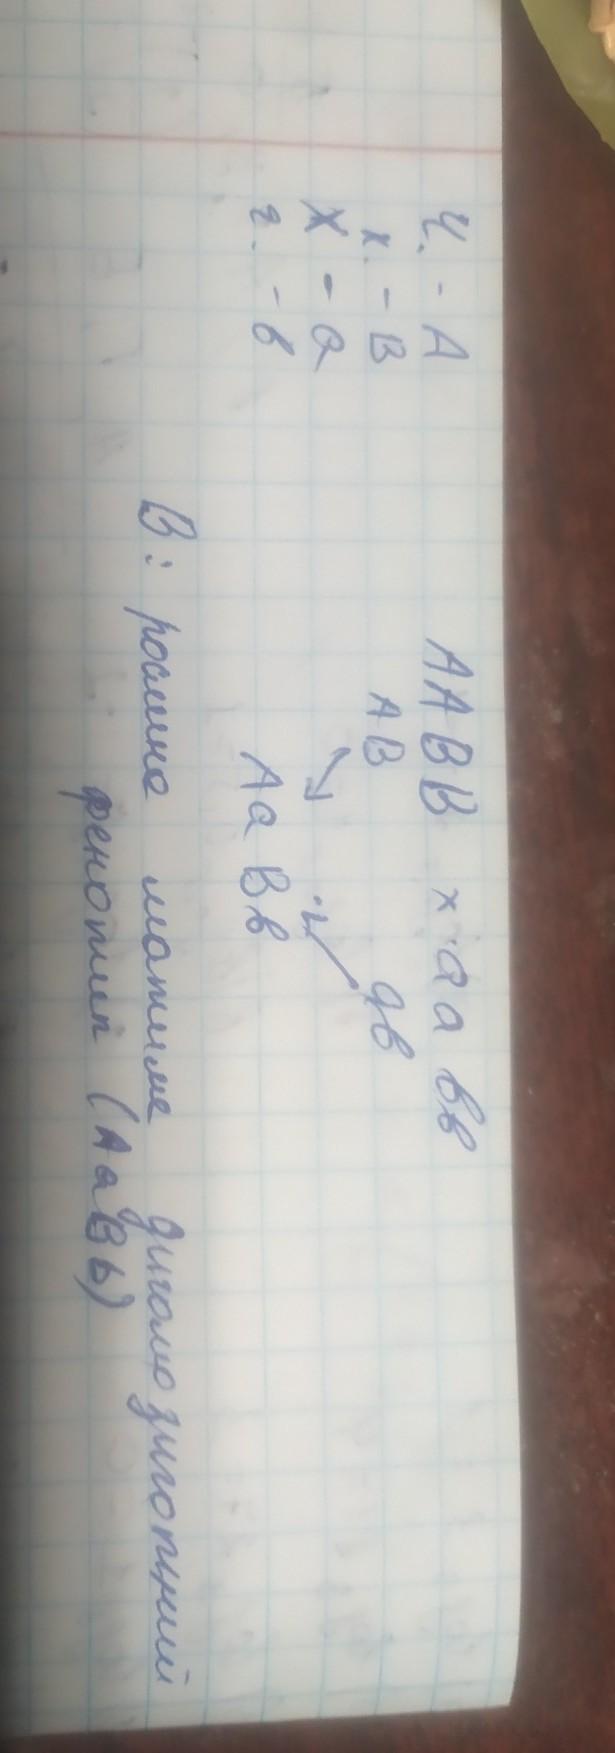 Ч. - А
к. - В
Ж - а
г. - в
ААВВ х аа вв
АВ ав
АаВв
В: рослина матиме дигомозиготний
фенотип (АаВb)